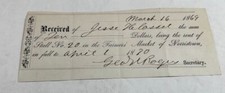 March 16 1869
Received of Jesse H. the sum
of Ten Dollars, being the rent of
Stall No. 20 in the Farmers' Market of Norristown,
in full to April 1 1870
Geo W Rogers Secretary.